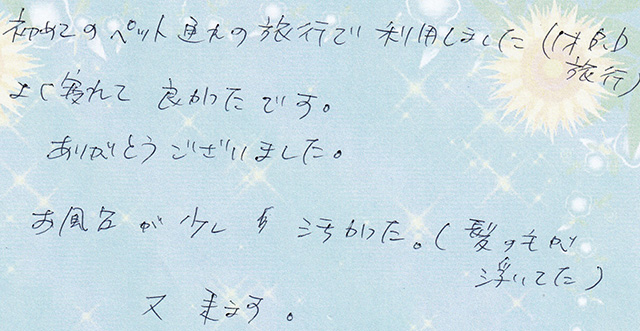 初めてのペット連れの旅行で利用しました(1才
旅行)
よく寝れて 良かったです。
ありがとうございました。
お風呂が少し 汚かった。(髪の毛が
浮いてた)
又 来ます。